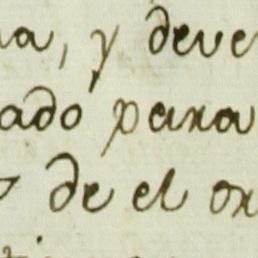 a, y deve
ado para
de el or